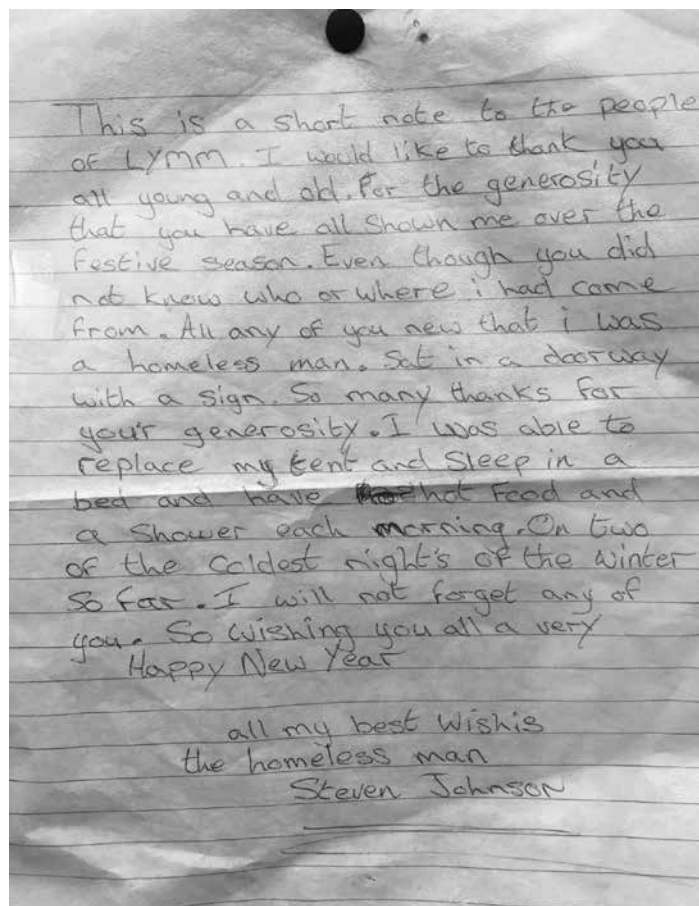 This is a short note to the people
of Lymm. I would like to thank you
all young and old. For the generosity
that you have all shown me over the
festive season. Even though you did
not know who or where i had come
from. All any of you new that i was
a homeless man. Sat in a doorway
with a sign. So many thanks for
your generosity. I was able to
replace my tent and Sleep in a
bed and have hot Food and
a Shower each morning. On two
of the Coldest night's of the winter
So far. I will not forget any of
you. So wishing you all a very
Happy New Year
all my best Wishis
the homeless man
Steven Johnson